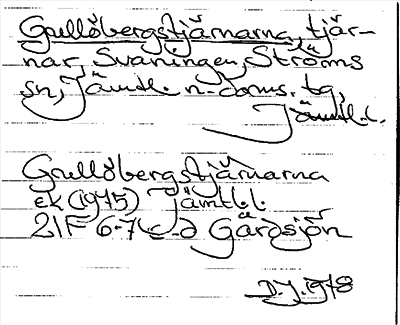 Gullöbergstjärnarna, tjär-
nar, Svaningen, Ströms
sn, Jämtl. n. doms. tg,
Jämtl. l.
Gullöbergstjärnarna
ek (1975) Jämtl. l.
21F 6-7 c-d Gärdsjön
D.J. 1978